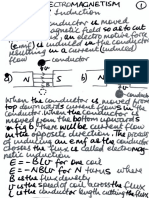 ELECTROMAGNETISM 1
Induction
conductor is moved
magnetic field so as to cut
an electro motive force
(emf) is induced in the conductor
resulting in a current (induced)
flowing
a) N S b)
conductor
When the conductor is moved from
top downwards a current flows in
the conductor. When the conductor is
moved from the bottom upwards
in fig b there will be current flow
in the opposite direction. The process
of inducing an emf as the conductor
crosses the flux is called electromag-
netic induction
E = -Blv for one coil
E = -NBlv for N turns where
B is the flux density
v is the speed of coil across the flux
l is the conductor length cutting the flux